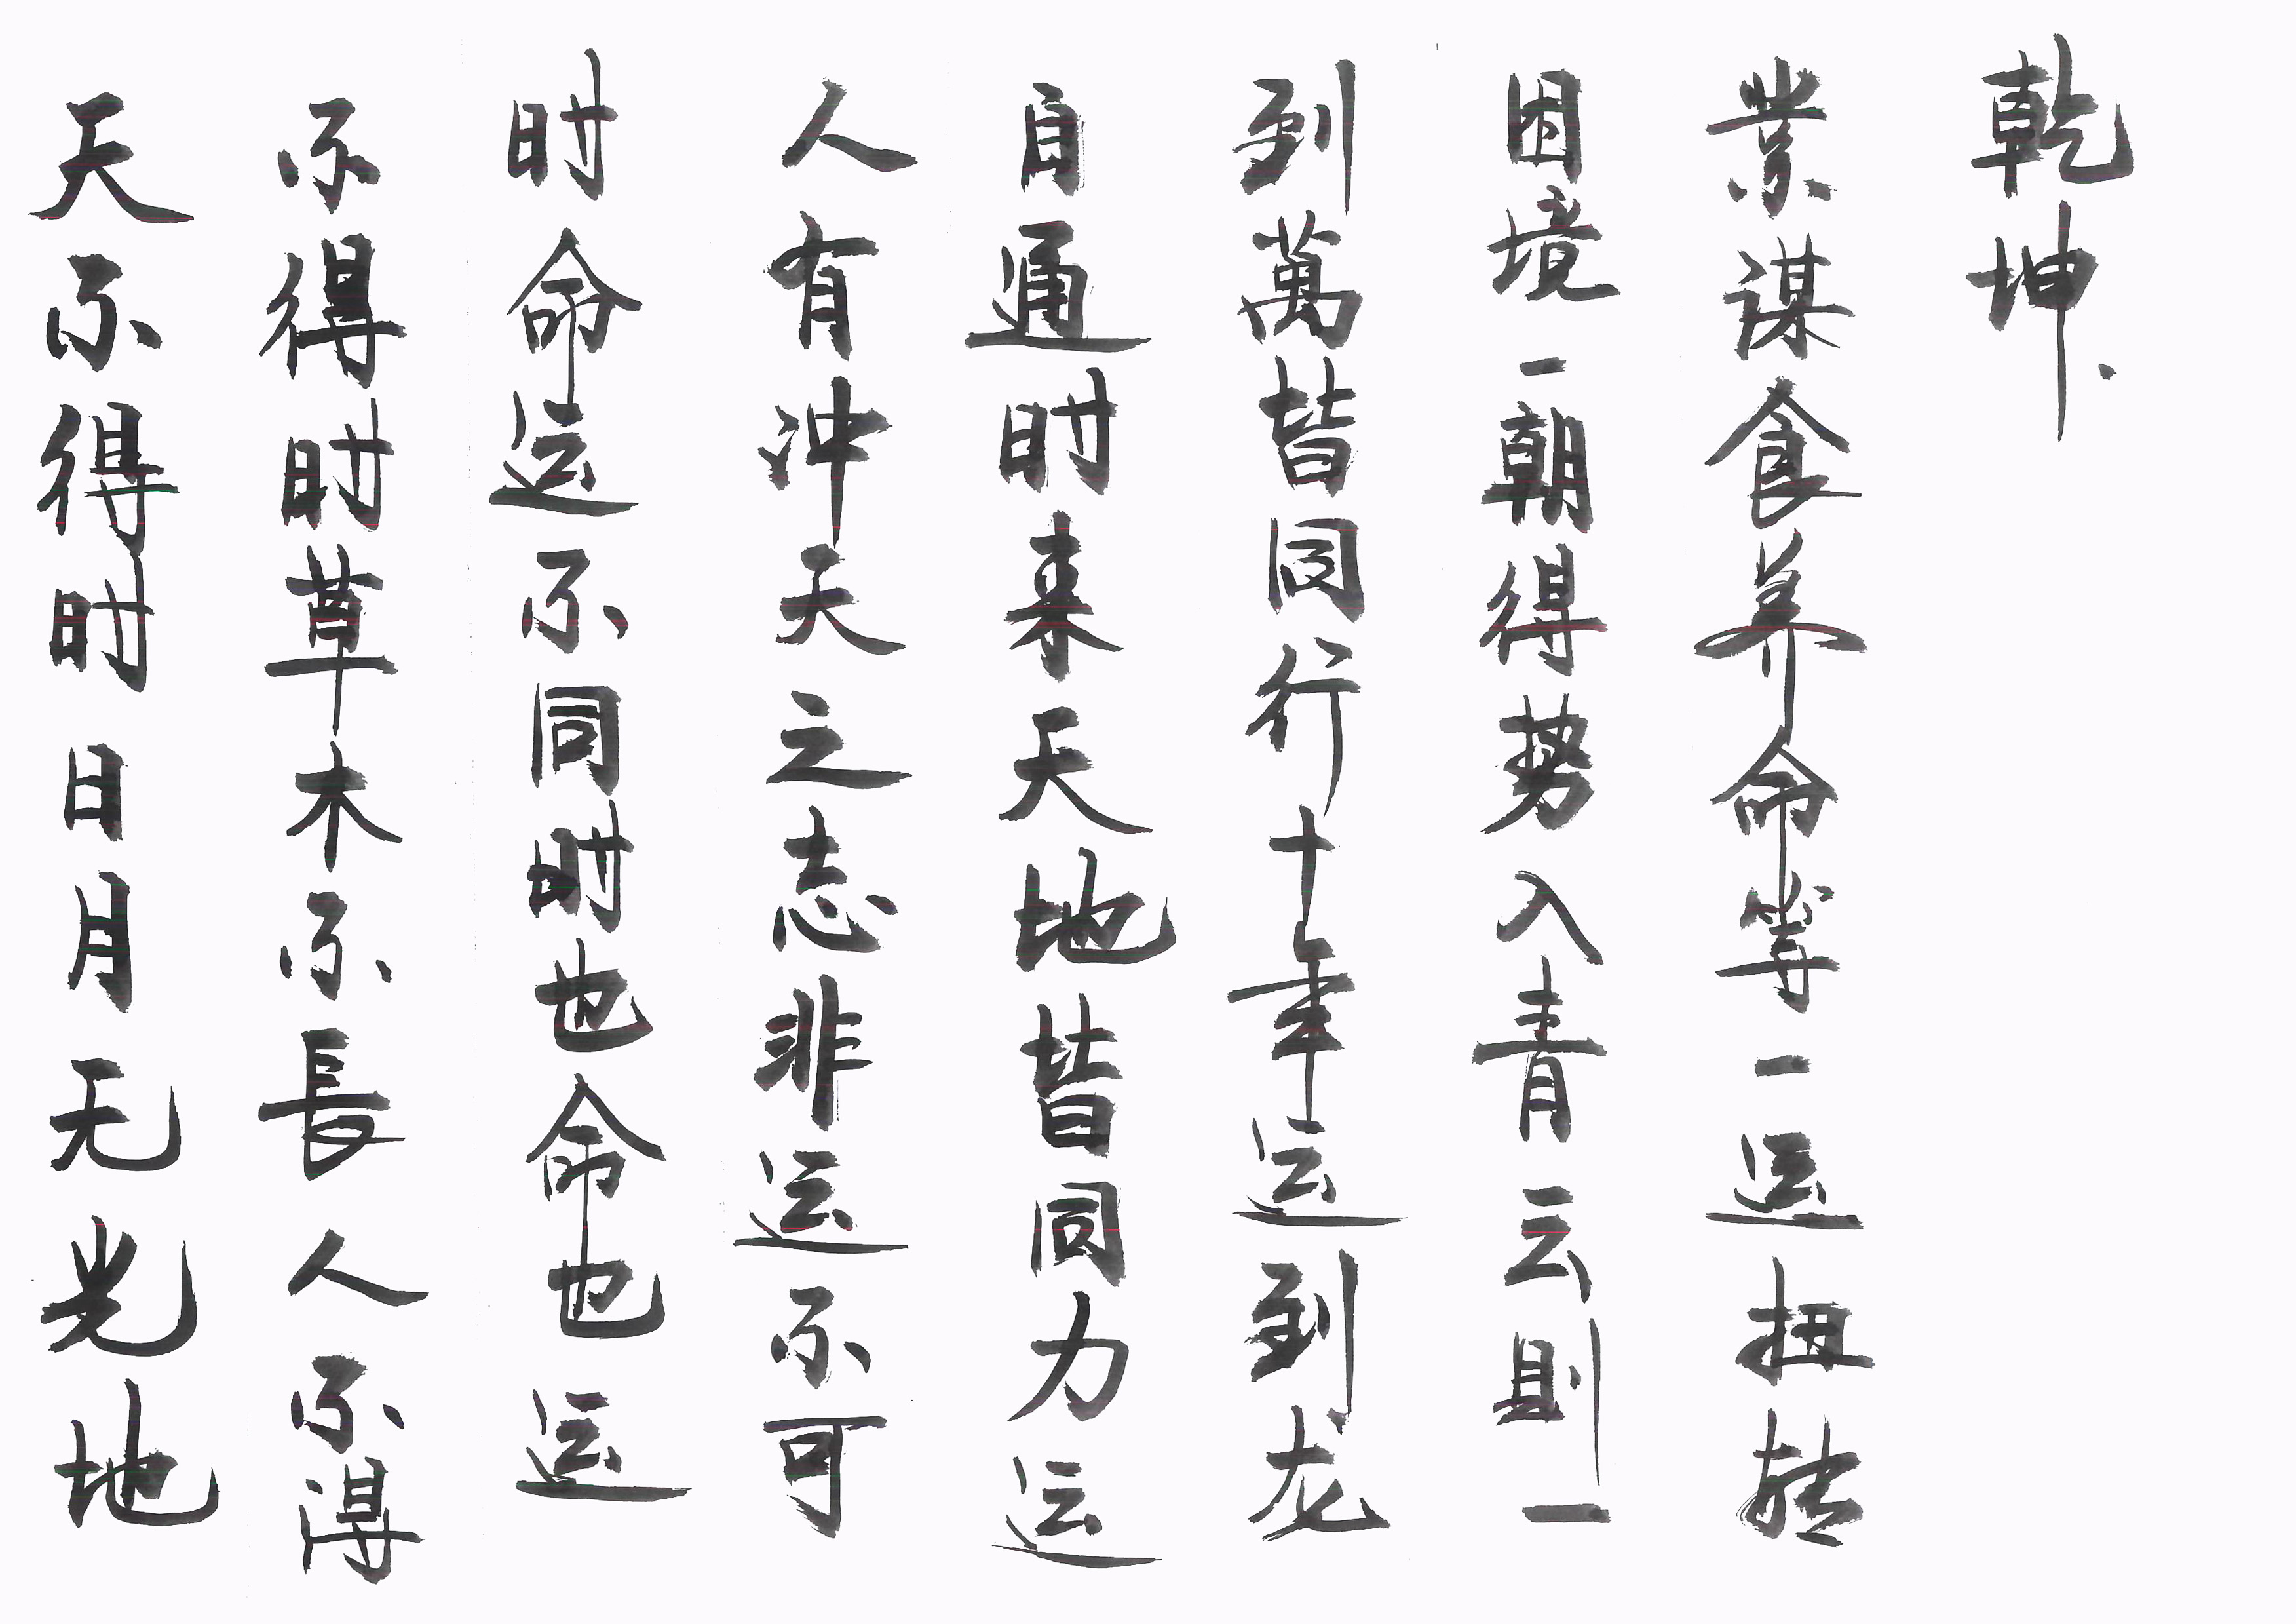 天不得时日月无光地
不得时草木不長人不得
时命运不同时也命也运
人有冲天之志非运不可
自通时来天地皆同力运
到萬皆同行十年运到龙
困境一朝得势入青云则一
業谋食养命等一运扭转
乾坤、